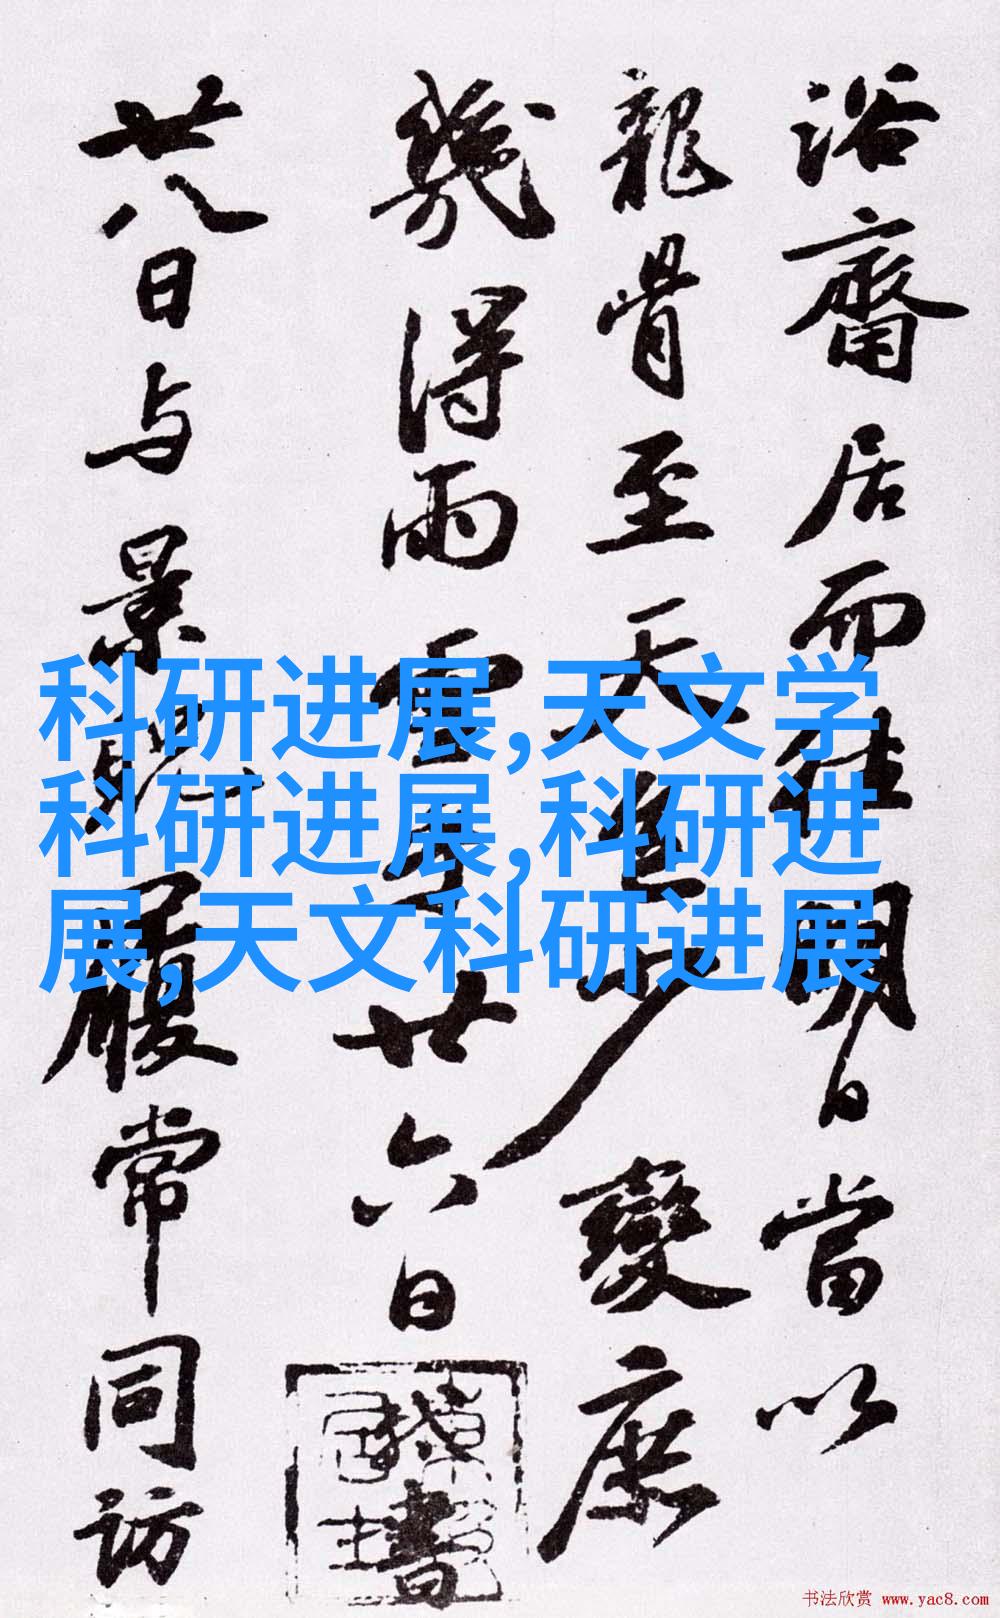 浴齋居而往明日當以
龍骨至天少變庶
幾得雨廿六日書
廿八日与景貺履常同訪
科研进展,天文学
科研进展,科研进
展,天文科研进展
书法欣赏 www.yac8.com